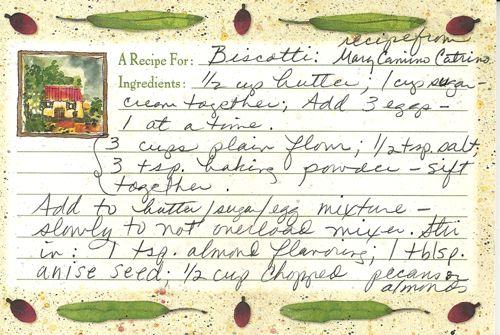 recipe from
A Recipe For: Biscotti: Mary Camino Catrino
Ingredients: 1/2 cup butter, 1 cup sugar -
cream together; Add 3 eggs -
1 at a time.
3 cups plain flour; 1/2 tsp. salt
3 tsp. baking powder - sift
together.
Add to butter/sugar/egg mixture -
slowly to not overload mixer. Stir
in: 1 tsp. almond flavoring; 1 tblsp.
anise seed; 1/2 cup chopped pecans or
almonds